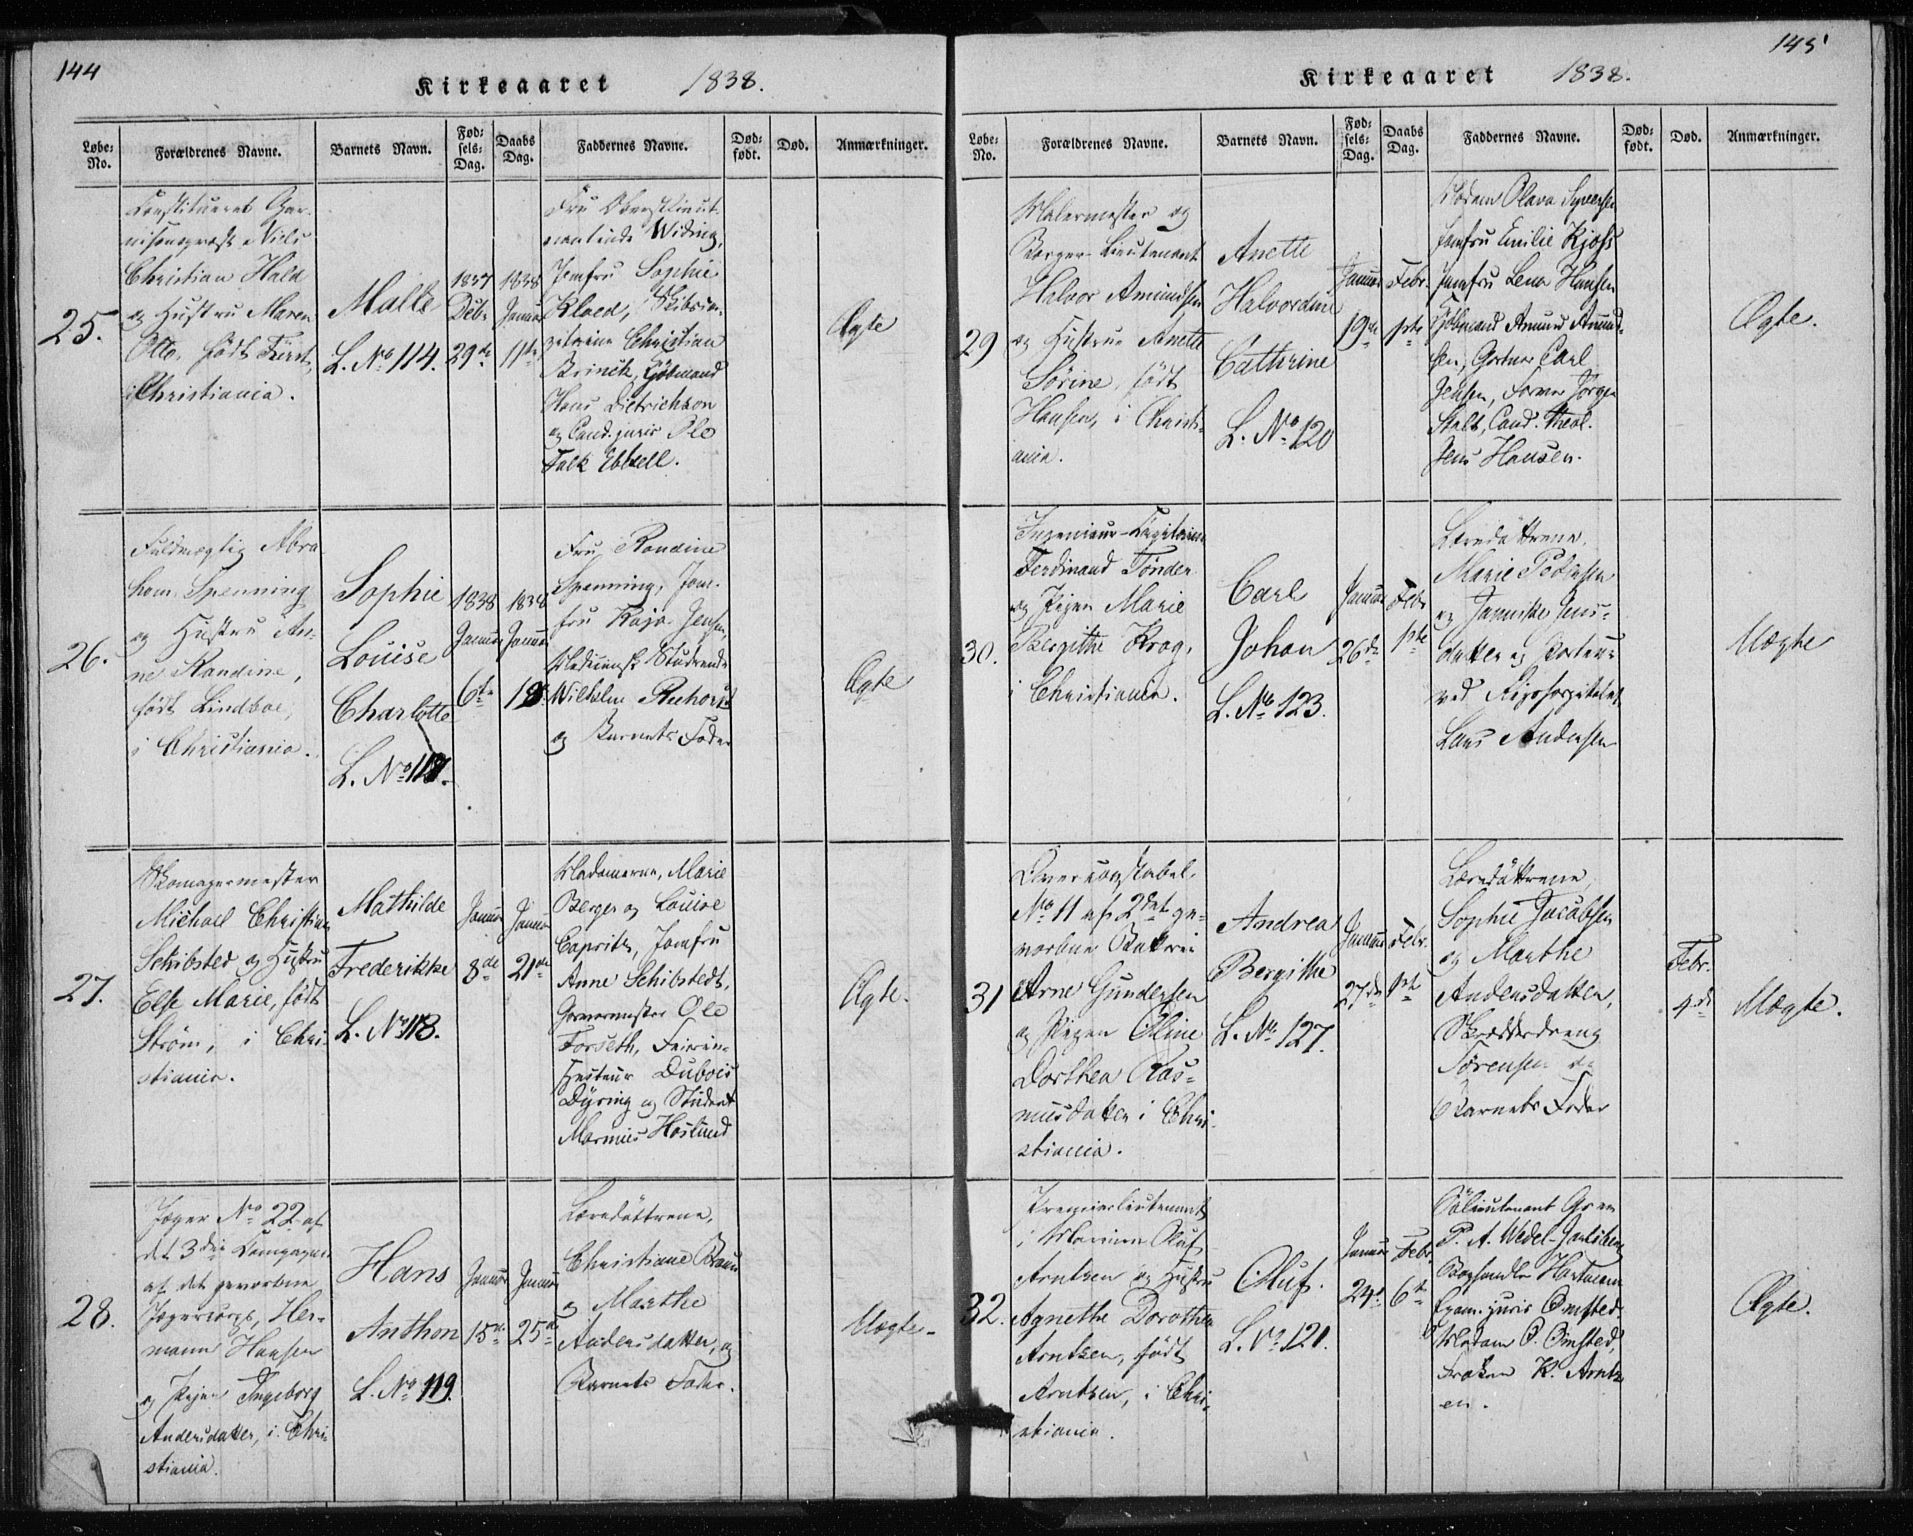 144
Kirkeaaret 1838.
Løbe-No.
Forældrenes Navne.
Barnets Navn.
Fødsels-Dag.
Daabs Dag.
Faddernes Navne.
Død-født.
Død.
Anmærkninger.
25.
Constitueret Gar-
nisonspræst Niels
Christian Hald
og Hustru Maren
Otto, født Fürst,
i Christiania.
Malte
L. No 114.
1837
Debr
29de
1838
Januar
11te
Fru Oberstlieut-
nantinde Widing,
Jomfru Sophie
Kloed, Skibsca-
pitaine Christian
Brinck, Kjøbmand
Hans Dietrichson
og Cand. juris Ole
Falk Ebbell.
Ægte
26.
Fuldmægtig Abra
ham Spenning
og Hustru An-
ne Randine,
født Lindboe,
i Christiania.
Sophie
Louise
Charlotte
L. No 117.
1838
Januar
6te
1838
Januar
Fru Randine
Spenning, Jom-
fru Kaja Jensen,
Medicinsk Studerende
Wilhelm
og Barnets Fader
Ægte
27.
Skomagermester
Michael Christian
Schibsted og Hustru
Else Marie, født
Strøm, i Chri-
stiania.
Mathilde
Frederikke
L. No 118.
Januar
8de
Januar
21de
Madamerne, Marie
Berger og Louise
Capritz, Jomfru
Anne Schibstedt,
Garvermester Ole
Forseth,
Dubois
Dyring og Student
Marinius Høslund
Ægte.
28.
Jæger No 22 af
det 3die Compagnie
af det gevorbne
Jægercorps, Her-
mann Hansen
og Pigen Ingeborg
Andersdatter, i Chri-
stiania.
Hans
Anthon
L. No 119.
Januar
15de
Januar
25de
Læredøttrene,
Christiane Braun
og Marthe
Andersdatter, og
Barnets Fader.
Uægte.
145
Kirkeaaret 1838.
Løbe-No.
Forældrenes Navne.
Barnets Navn.
Fødsels-Dag.
Daabs Dag.
Faddernes Navne.
Død-født.
Død.
Anmærkninger.
29
Malermester og
Borger-Lieutenant
Halvor Amundsen
og Hustrue Anette
Sørine, født
Hansen, i Christi-
ania.
Anette
Halvordine
Cathrine
L. No 120
Januar
19de
Febr.
1ste
Madam Olava Syversen
Jomfru Emilie Kjøss
Jomfru Lena Hansen
Kjøbmand Amund Amund-
sen, Gartner Carl
Jensen, Farver Jørgen
Stalt, Cand. theol.
Jens Hansen.
Ægte.
30.
Ingenieur-Capitaine
Ferdinand Tønder
og Pigen Marie
Bergithe Krag,
i Christiania.
Carl
Johan
L. No 123.
Januar
26de
Febr
1ste
Læredøttrene,
Marie Pedersen
og Jannike Jens-
datter og Portneur
ved Rigshospitalet
Lars Andersen
Uægte
31
Overconstabel
No 11 af 2det ge-
vorbne Batterie
Arne Gundersen
og Pigen Oline
Dorthea Ras-
musdatter i Chri-
stiania.
Andrea
Bergithe
L. No 127.
Januar
27de
Febr.
1ste
Læredøttrene,
Sophie Jacobsen
og Marthe
Andersdatter,
Skrædderdreng
Sørensen og
Barnets Fader
Febr.
4de
Uægte.
32.
Premierlieutenant
i Marinen Oluf
Arntzen og Hustru
Agnethe Dorothea
Arntzen, født
Arntzen, i Chri-
stiania.
Oluf.
L. No 121.
Januar
24de
Febr.
6te
Sölieutenant Greve
P. A. Wedel-Jarlsberg
Boghandler Hartmann
Exam. juris Omsted,
Madam O. Omsted,
Frøken K. Arntz
en.
Ægte.